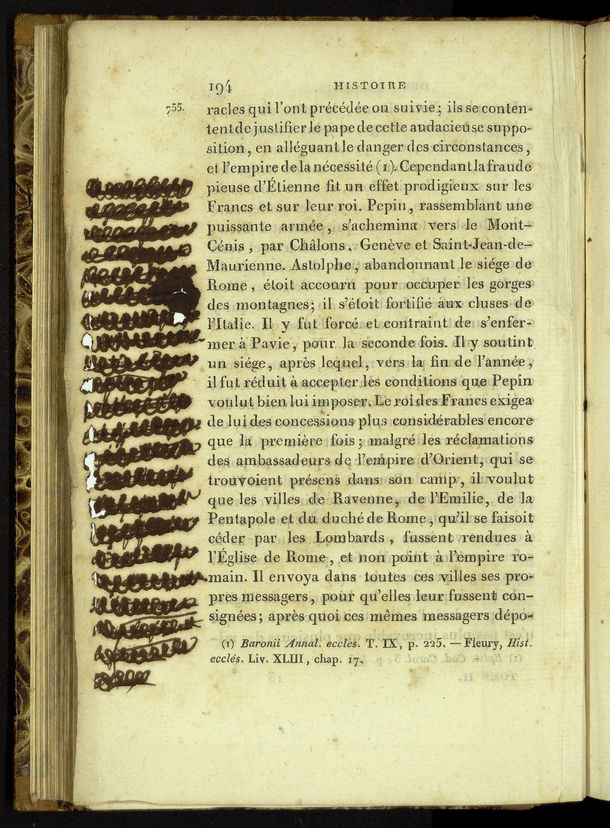 194 HISTOIRE
755. racles qui l'ont précédée ou suivie; ils se conten-
tent de justifier le pape de cette audacieuse suppo-
sition, en alléguant le danger des circonstances,
et l'empire de la nécessité (1). Cependant la fraude
pieuse d'Étienne fit un effet prodigieux sur les
Francs et sur leur roi. Pepin, rassemblant une
puissante armée, s'achemina vers le Mont-
Cénis, par Châlons, Genève et Saint-Jean-de-
Maurienne. Astolphe, abandonnant le siége de
Rome, étoit accouru pour occuper les gorges
des montagnes; il s'étoit fortifié aux cluses de
l'Italie. Il y fut forcé et contraint de s'enfer-
mer à Pavie, pour la seconde fois. Il y soutint
un siége, après lequel, vers la fin de l'année,
il fut réduit à accepter les conditions que Pepin
voulut bien lui imposer. Le roi des Francs exigea
de lui des concessions plus considérables encore
que la première fois; malgré les réclamations
des ambassadeurs de l'empire d'Orient, qui se
trouvoient présens dans son camp, il voulut
que les villes de Ravenne, de l'Emilie, de la
Pentapole et du duché de Rome, qu'il se faisoit
céder par les Lombards, fussent rendues à
l'Église de Rome, et non point à l'empire ro-
main. Il envoya dans toutes ces villes ses pro-
pres messagers, pour qu'elles leur fussent con-
signées; après quoi ces mêmes messagers dépo-
(1) Baronii Annal. eccles. T. IX, p. 225. — Fleury, Hist.
ecclés. Liv. XLIII, chap. 17.